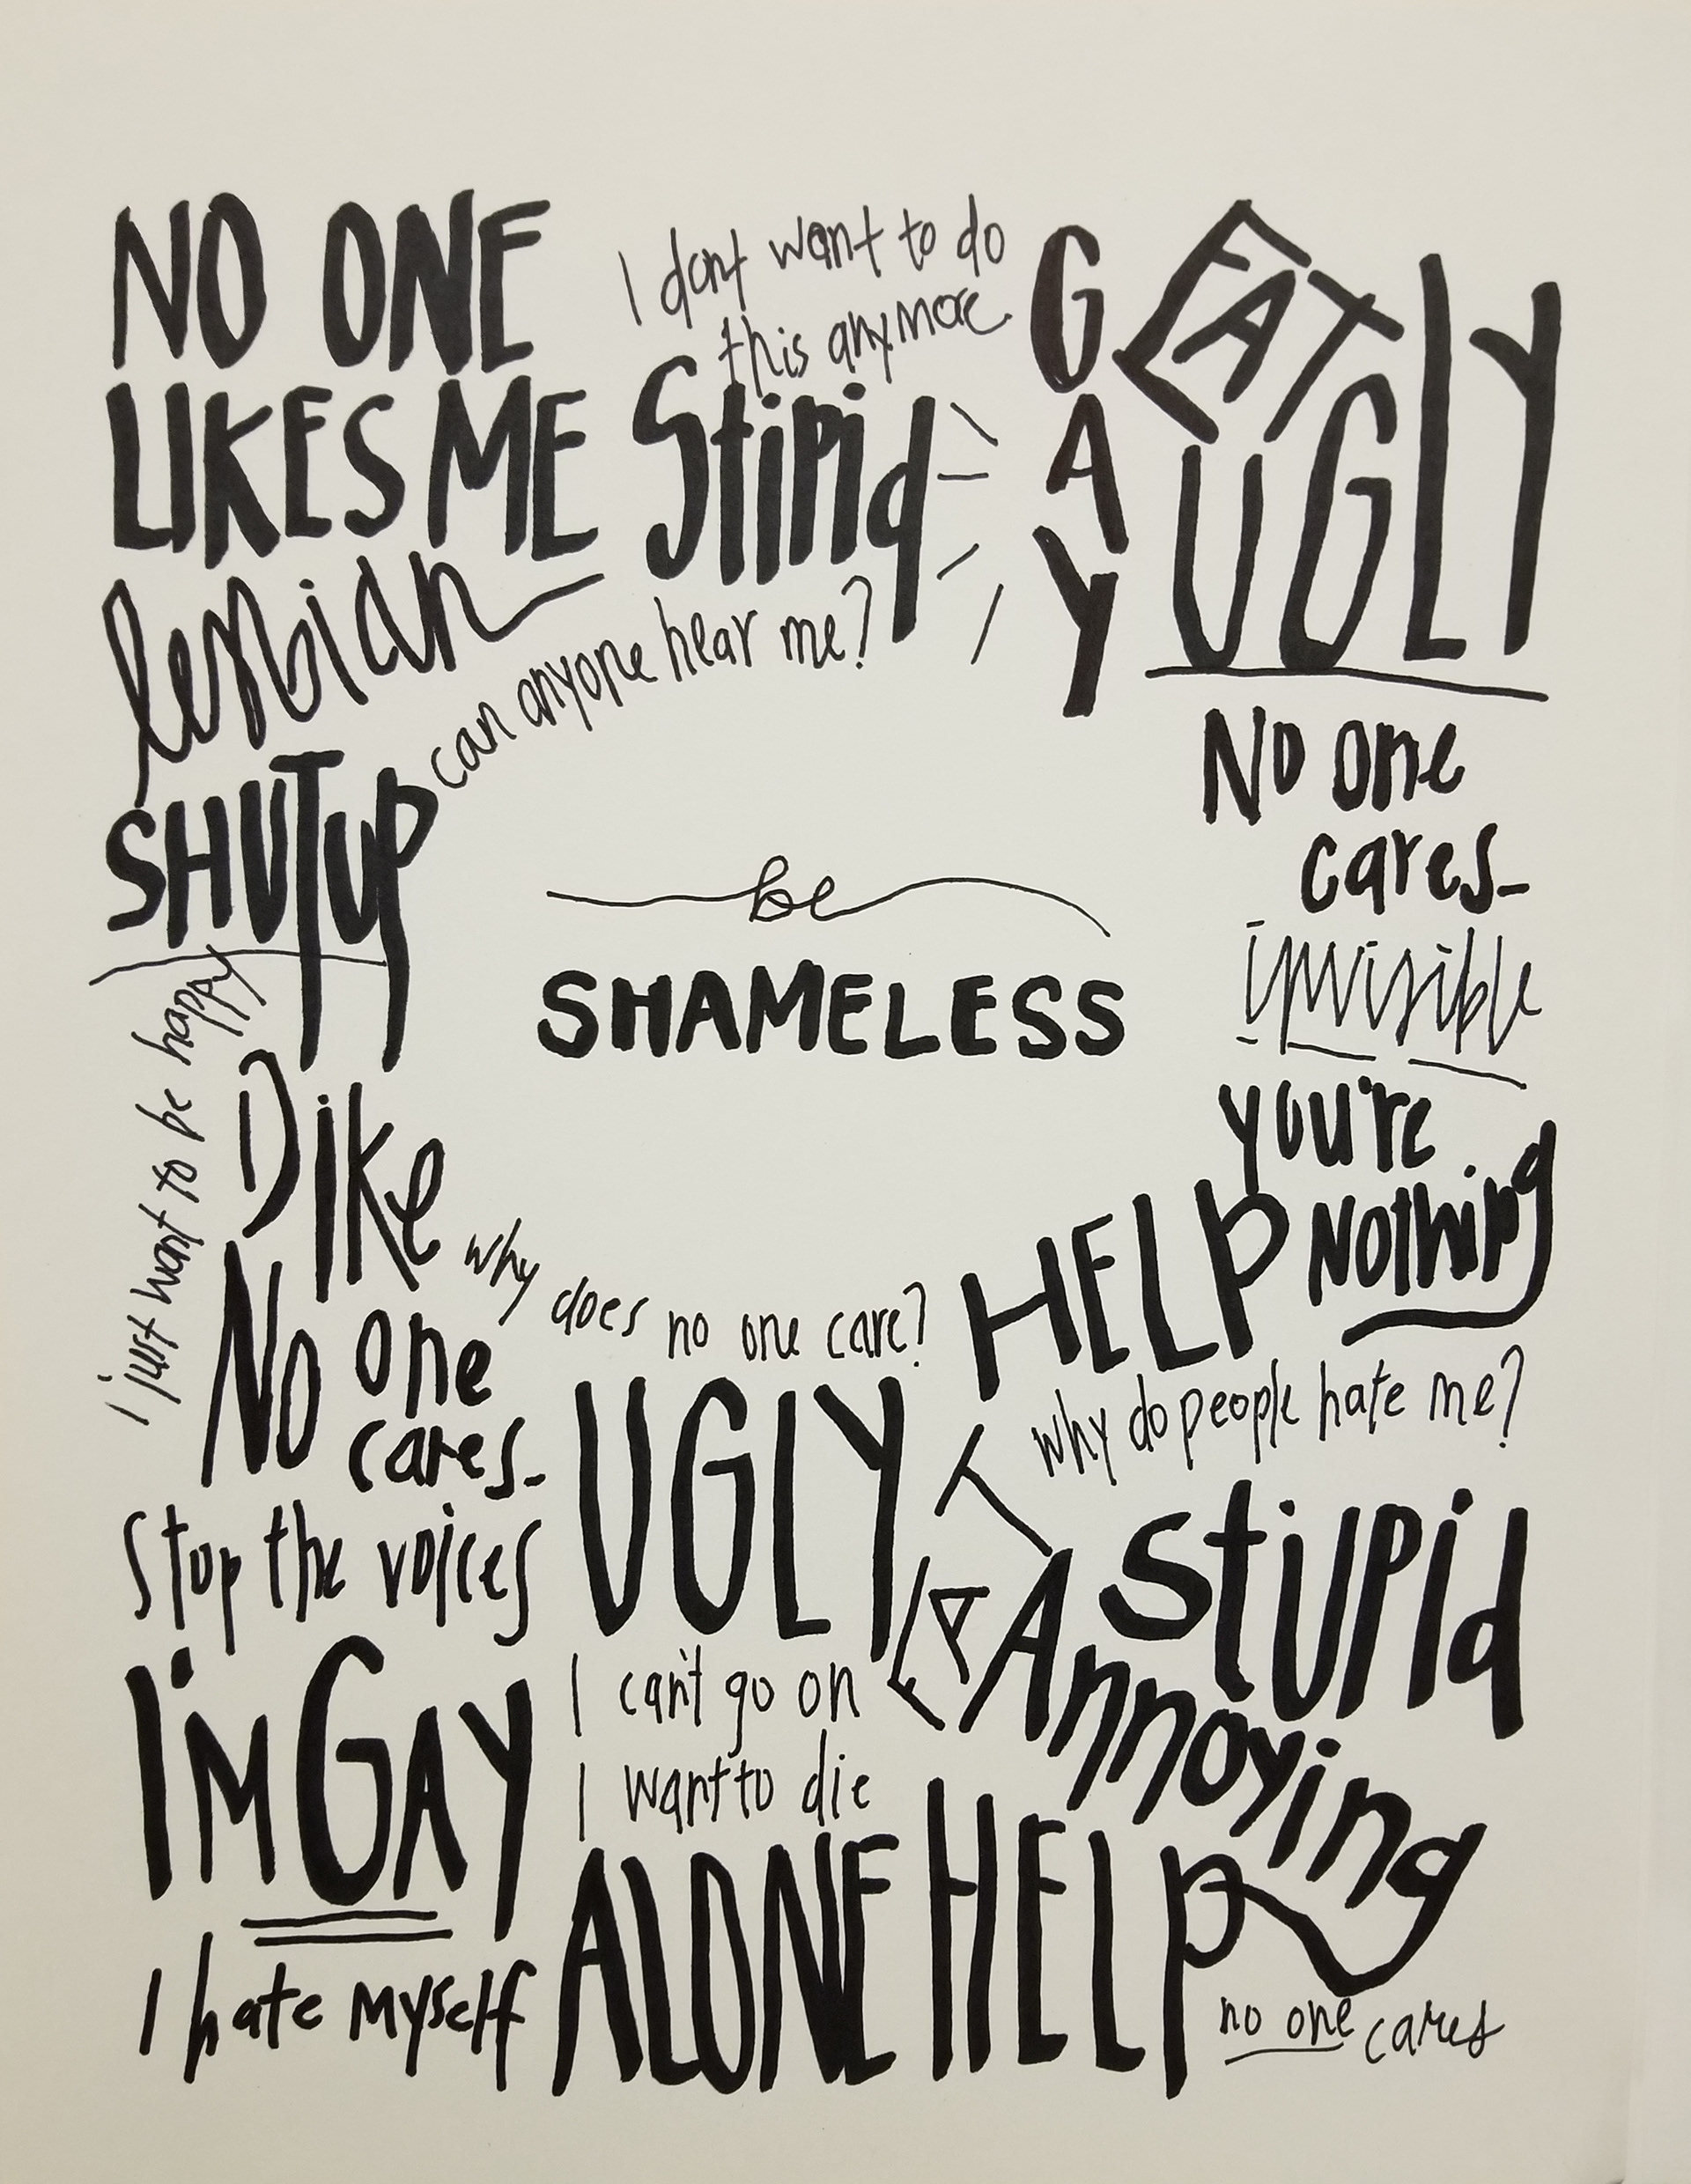 NO ONE
LIKES ME
I dont want to do
this anymore
Stupid
GAY
FAT
UGLY
lesbian
can anyone hear me?
SHUT UP
No one
cares-
be
SHAMELESS
invisible
i just want to be happy
Dike
you're
Nothing
HELP
why does no one care?
No one
cares-
why do people hate me?
UGLY
FAT
stupid
Stop the voices
Annoying
I'M GAY
I can't go on
I want to die
ALONE
HELP
I hate myself
no one cares